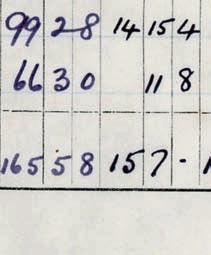 99 28 14 15 4
66 30 11 8
165 58 15 7 -